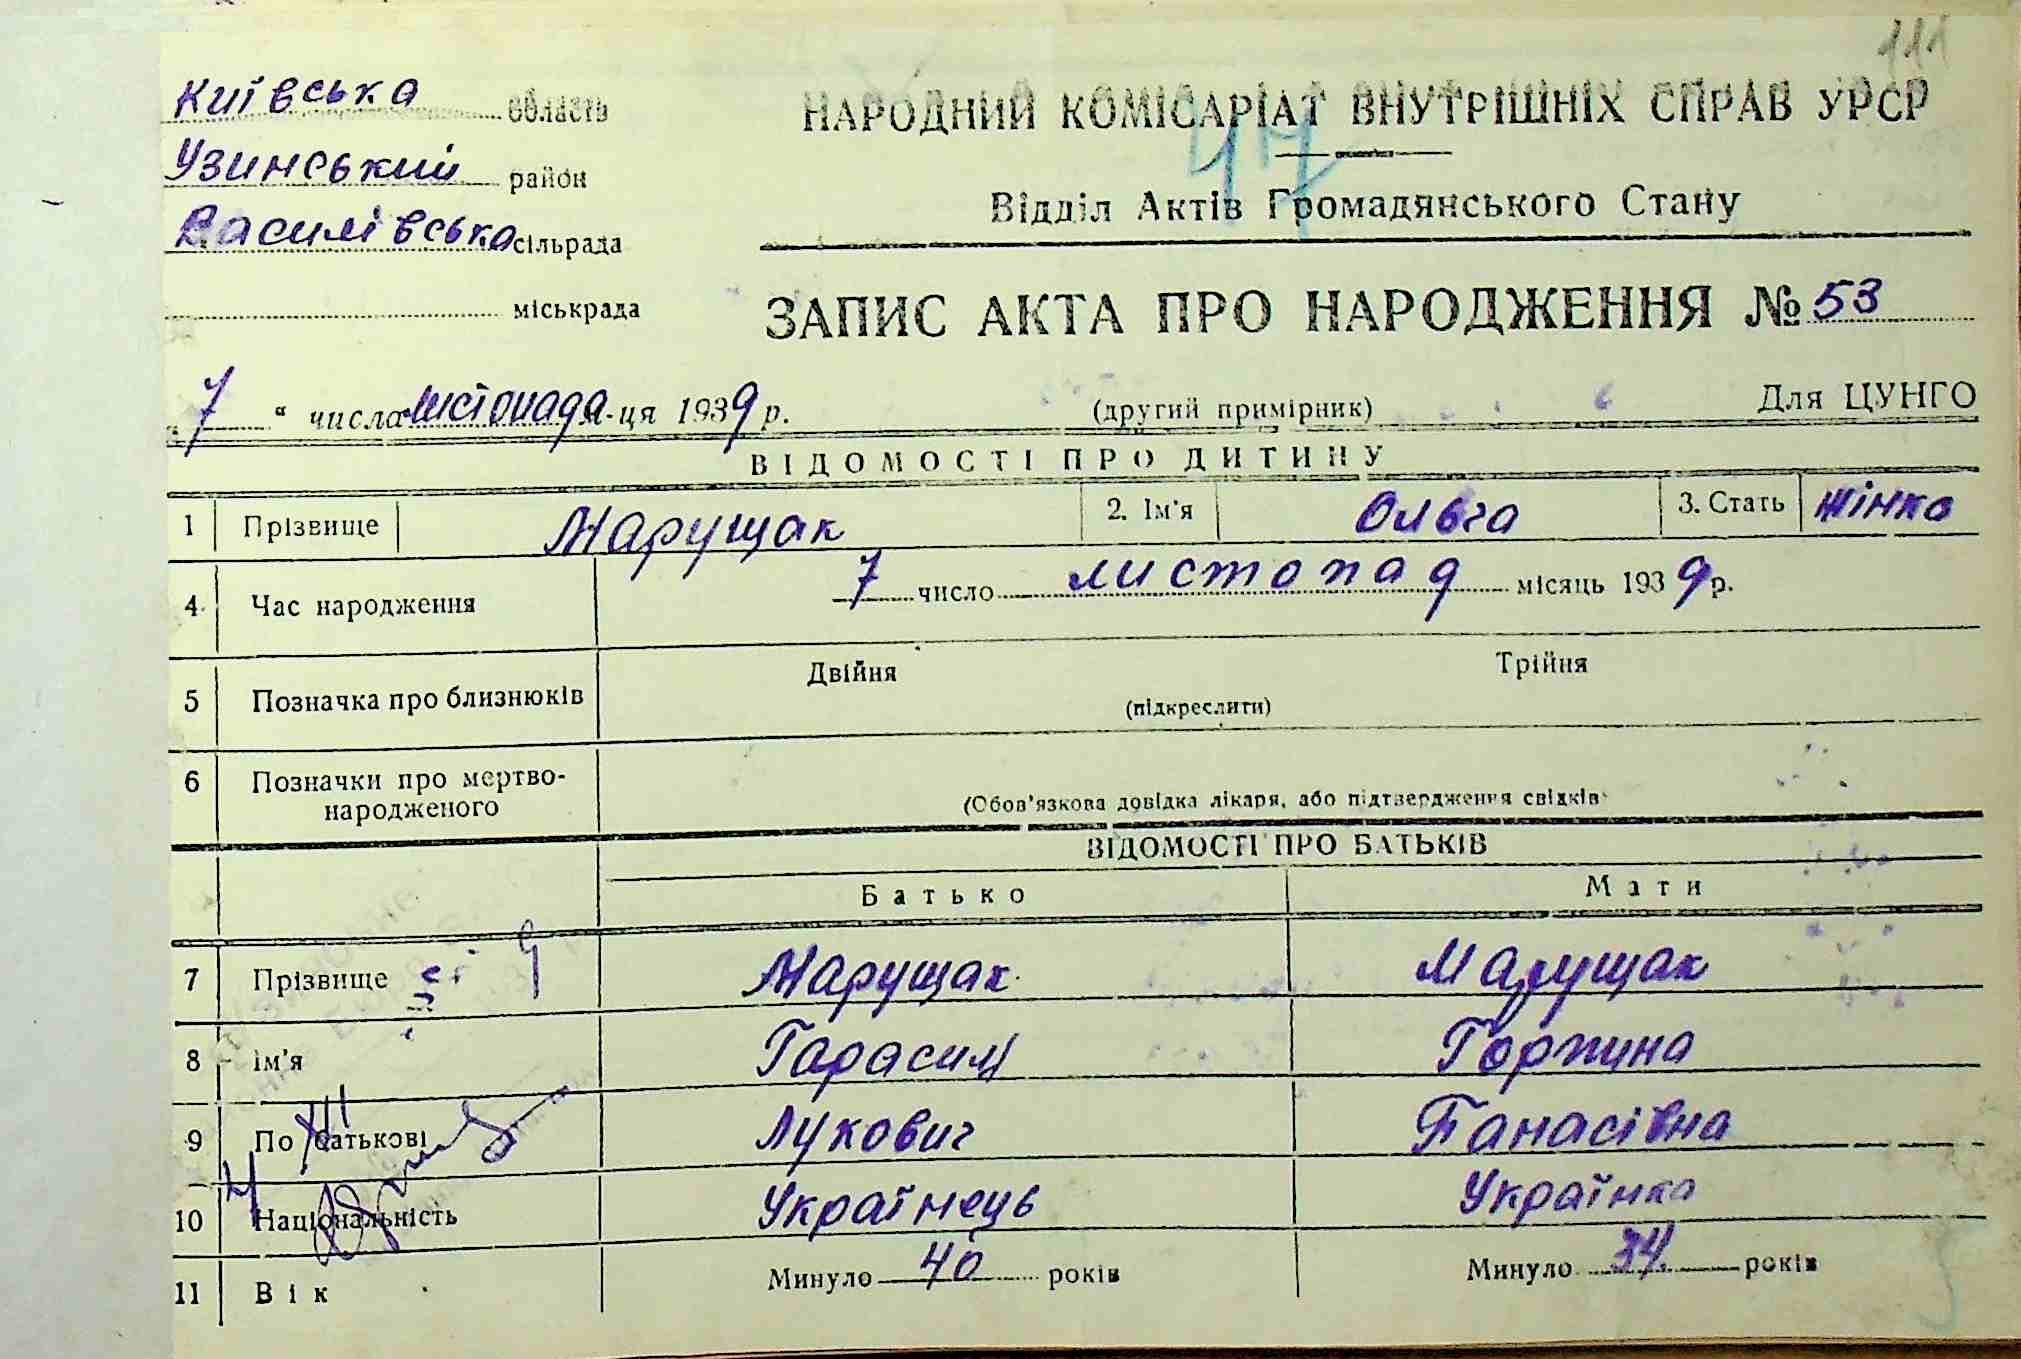 111
Київська область
Узинський район
Василівська сільрада
міськрада
НАРОДНИЙ КОМІСАРІАТ ВНУТРІШНІХ СПРАВ УРСР
47
Відділ Актів Громадянського Стану
ЗАПИС АКТА ПРО НАРОДЖЕННЯ № 53
„7“ числа листопада м-ця 1939 р. (другий примірник) Для ЦУНГО
ВІДОМОСТІ ПРО ДИТИНУ
1 Прізвище Марущак 2. Ім'я Ольга 3. Стать жінка
4 Час народження 7 число листопад місяць 1939 р.
5 Позначка про близнюків Двійня Трійня
(підкреслити)
6 Позначки про мертво-
народженого (Обов'язкова довідка лікаря, або підтвердження свідків
ВІДОМОСТІ ПРО БАТЬКІВ
Батько Мати
7 Прізвище Марущак Марущак
8 Ім'я Гарасим Горпина
9 По батькові Лукович Панасівна
10 Національність Українець Українка
11 Вік Минуло 40 років Минуло 34 років